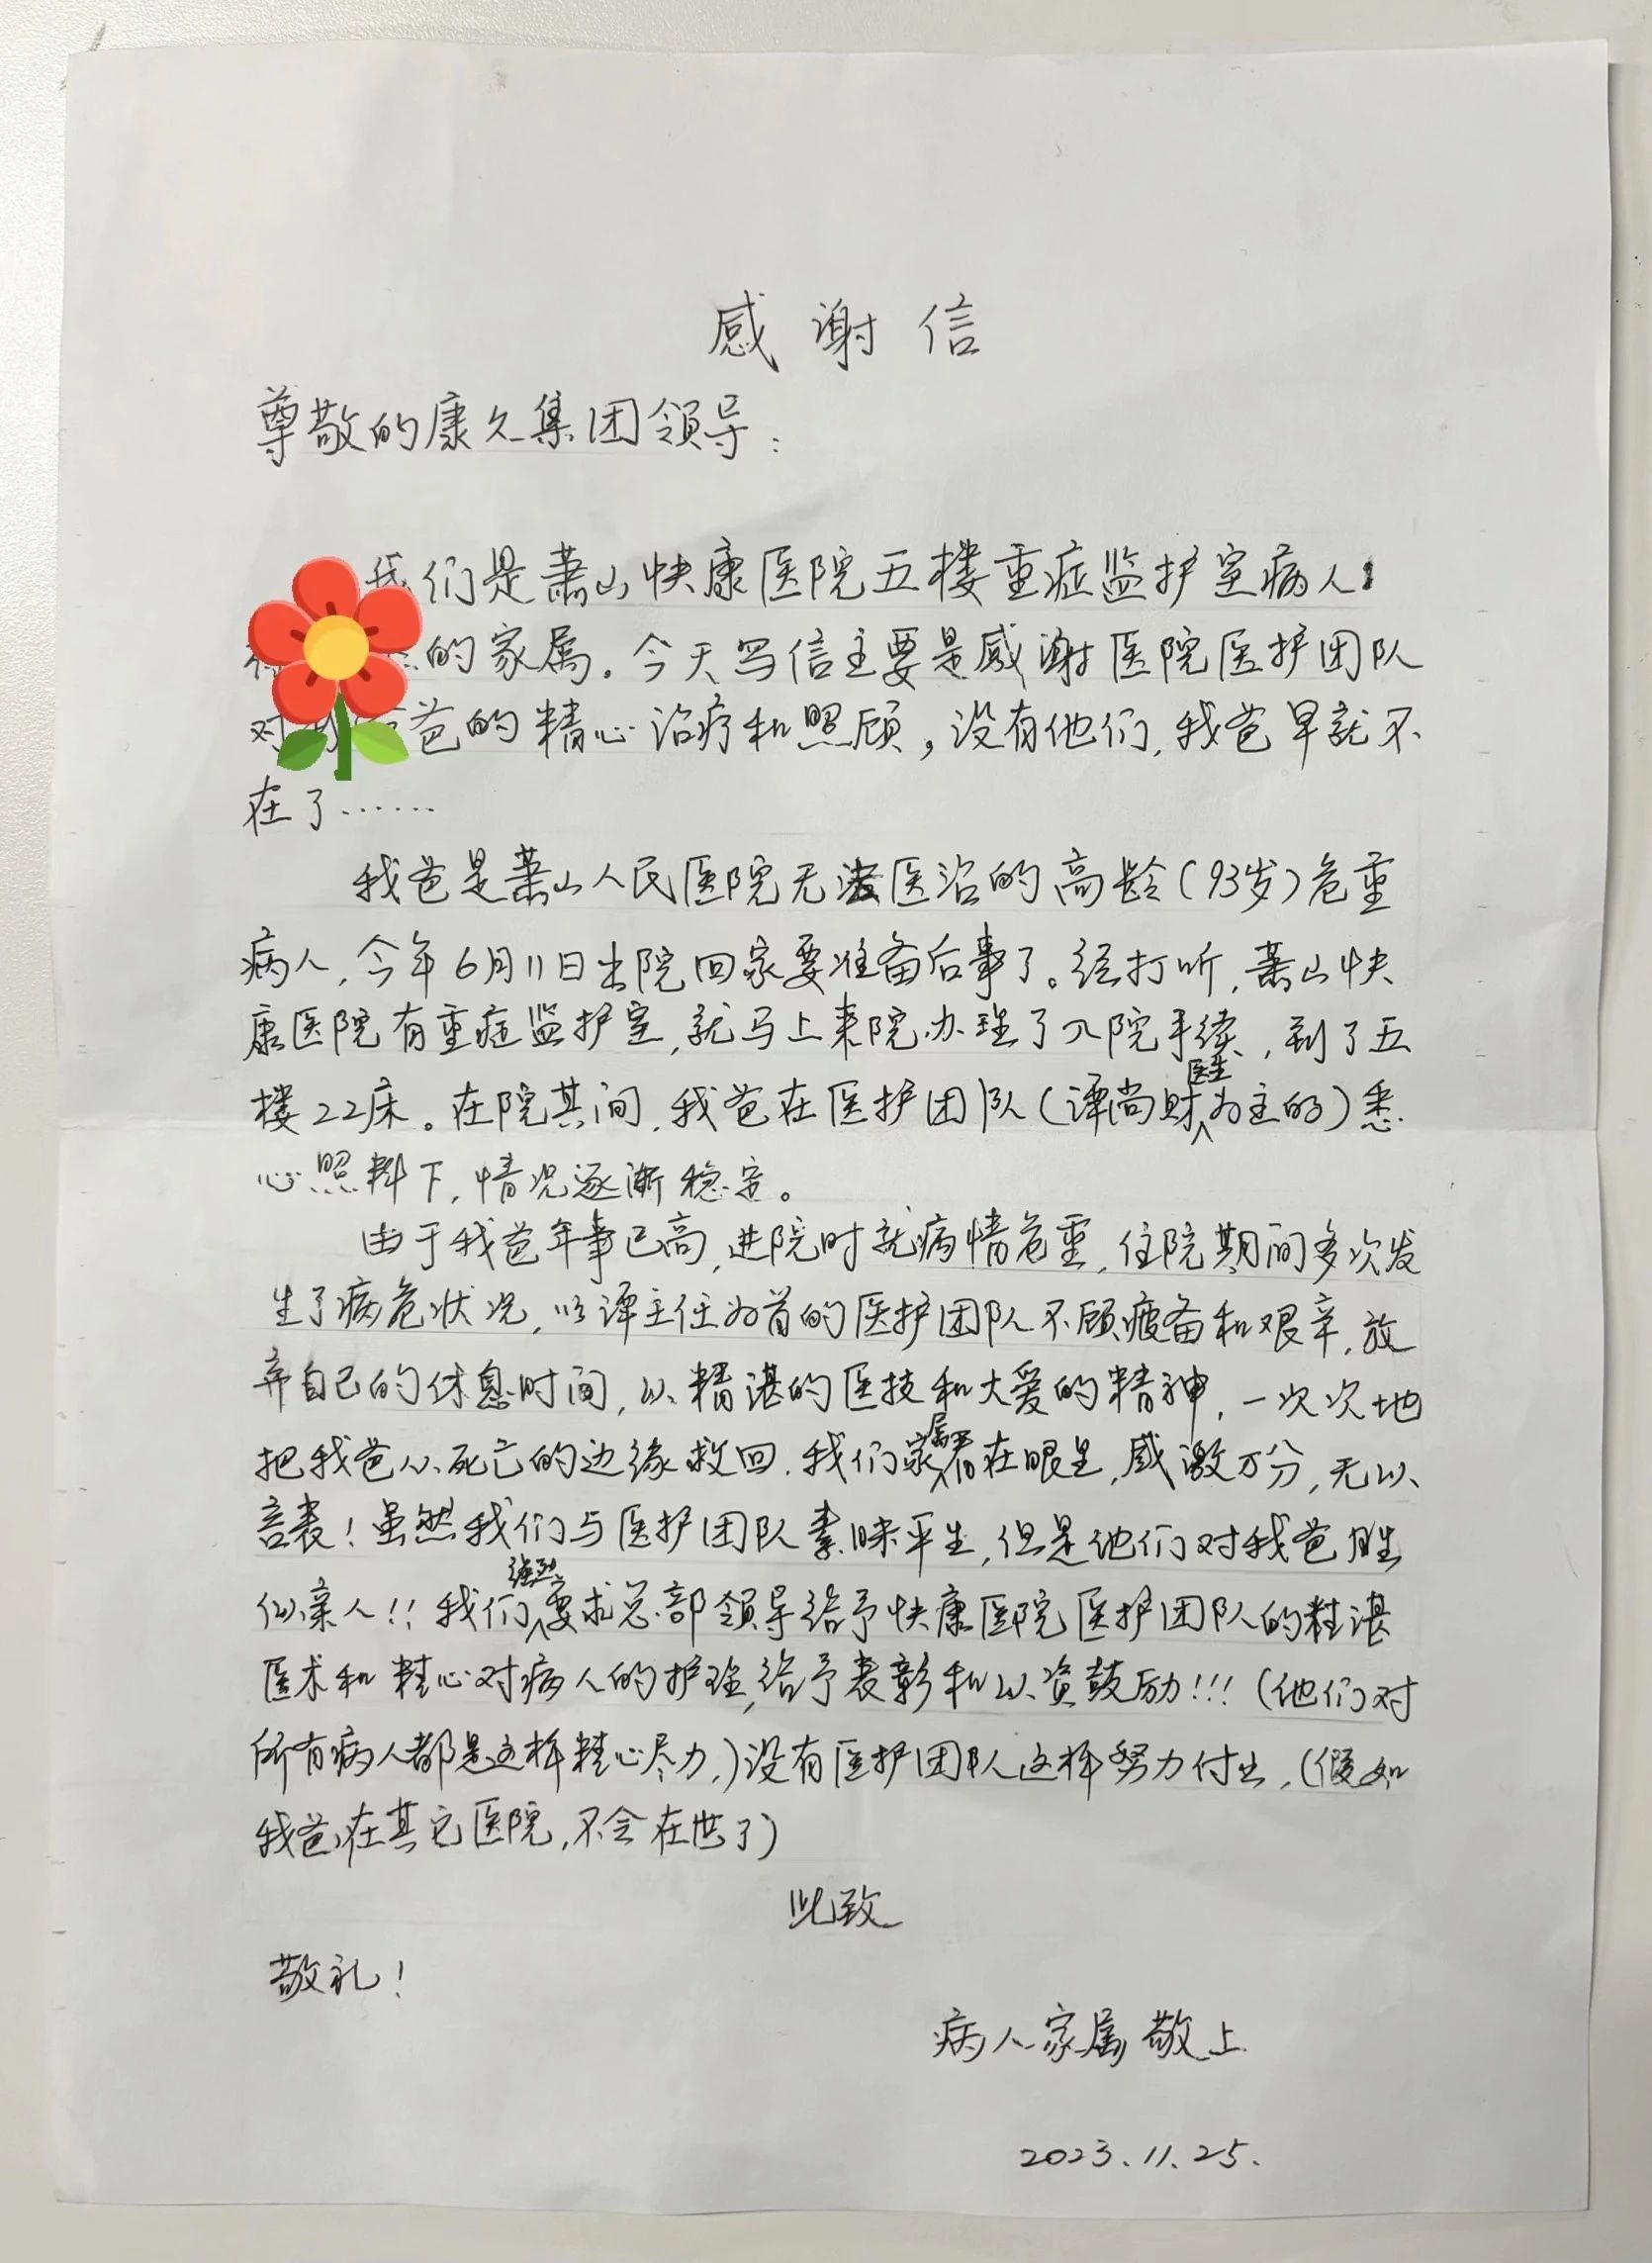 感谢信
尊敬的康久集团领导：
我们是萧山快康医院五楼重症监护室病人
的家属。今天写信主要是感谢医院医护团队
对我爸爸的精心治疗和照顾，没有他们，我爸早就不
在了……
我爸是萧山人民医院无法医治的高龄（93岁）危重
病人，今年6月11日出院回家要准备后事了。经打听，萧山快
康医院有重症监护室，就马上来院办理了入院手续，到了五
楼22床。在院其间，我爸在医护团队（谭尚财医生为主的）悉
心照料下，情况逐渐稳定。
由于我爸年事已高，进院时就病情危重，住院期间多次发
生了病危状况，以谭主任为首的医护团队不顾疲备和艰辛，放
弃自己的休息时间，以精湛的医技和大爱的精神，一次次地
把我爸从死亡的边缘救回，我们家属看在眼里，感激万分，无以
言表！虽然我们与医护团队素昧平生，但是他们对我爸胜
似亲人！！我们强烈要求总部领导给予快康医院医护团队的精湛
医术和精心对病人的护理，给予表彰和以资鼓励！！！（他们对
所有病人都是这样精心尽力，）没有医护团队这样努力付出，（假如
我爸在其它医院，不会在世了）
此致
敬礼！
病人家属敬上
2023.11.25.